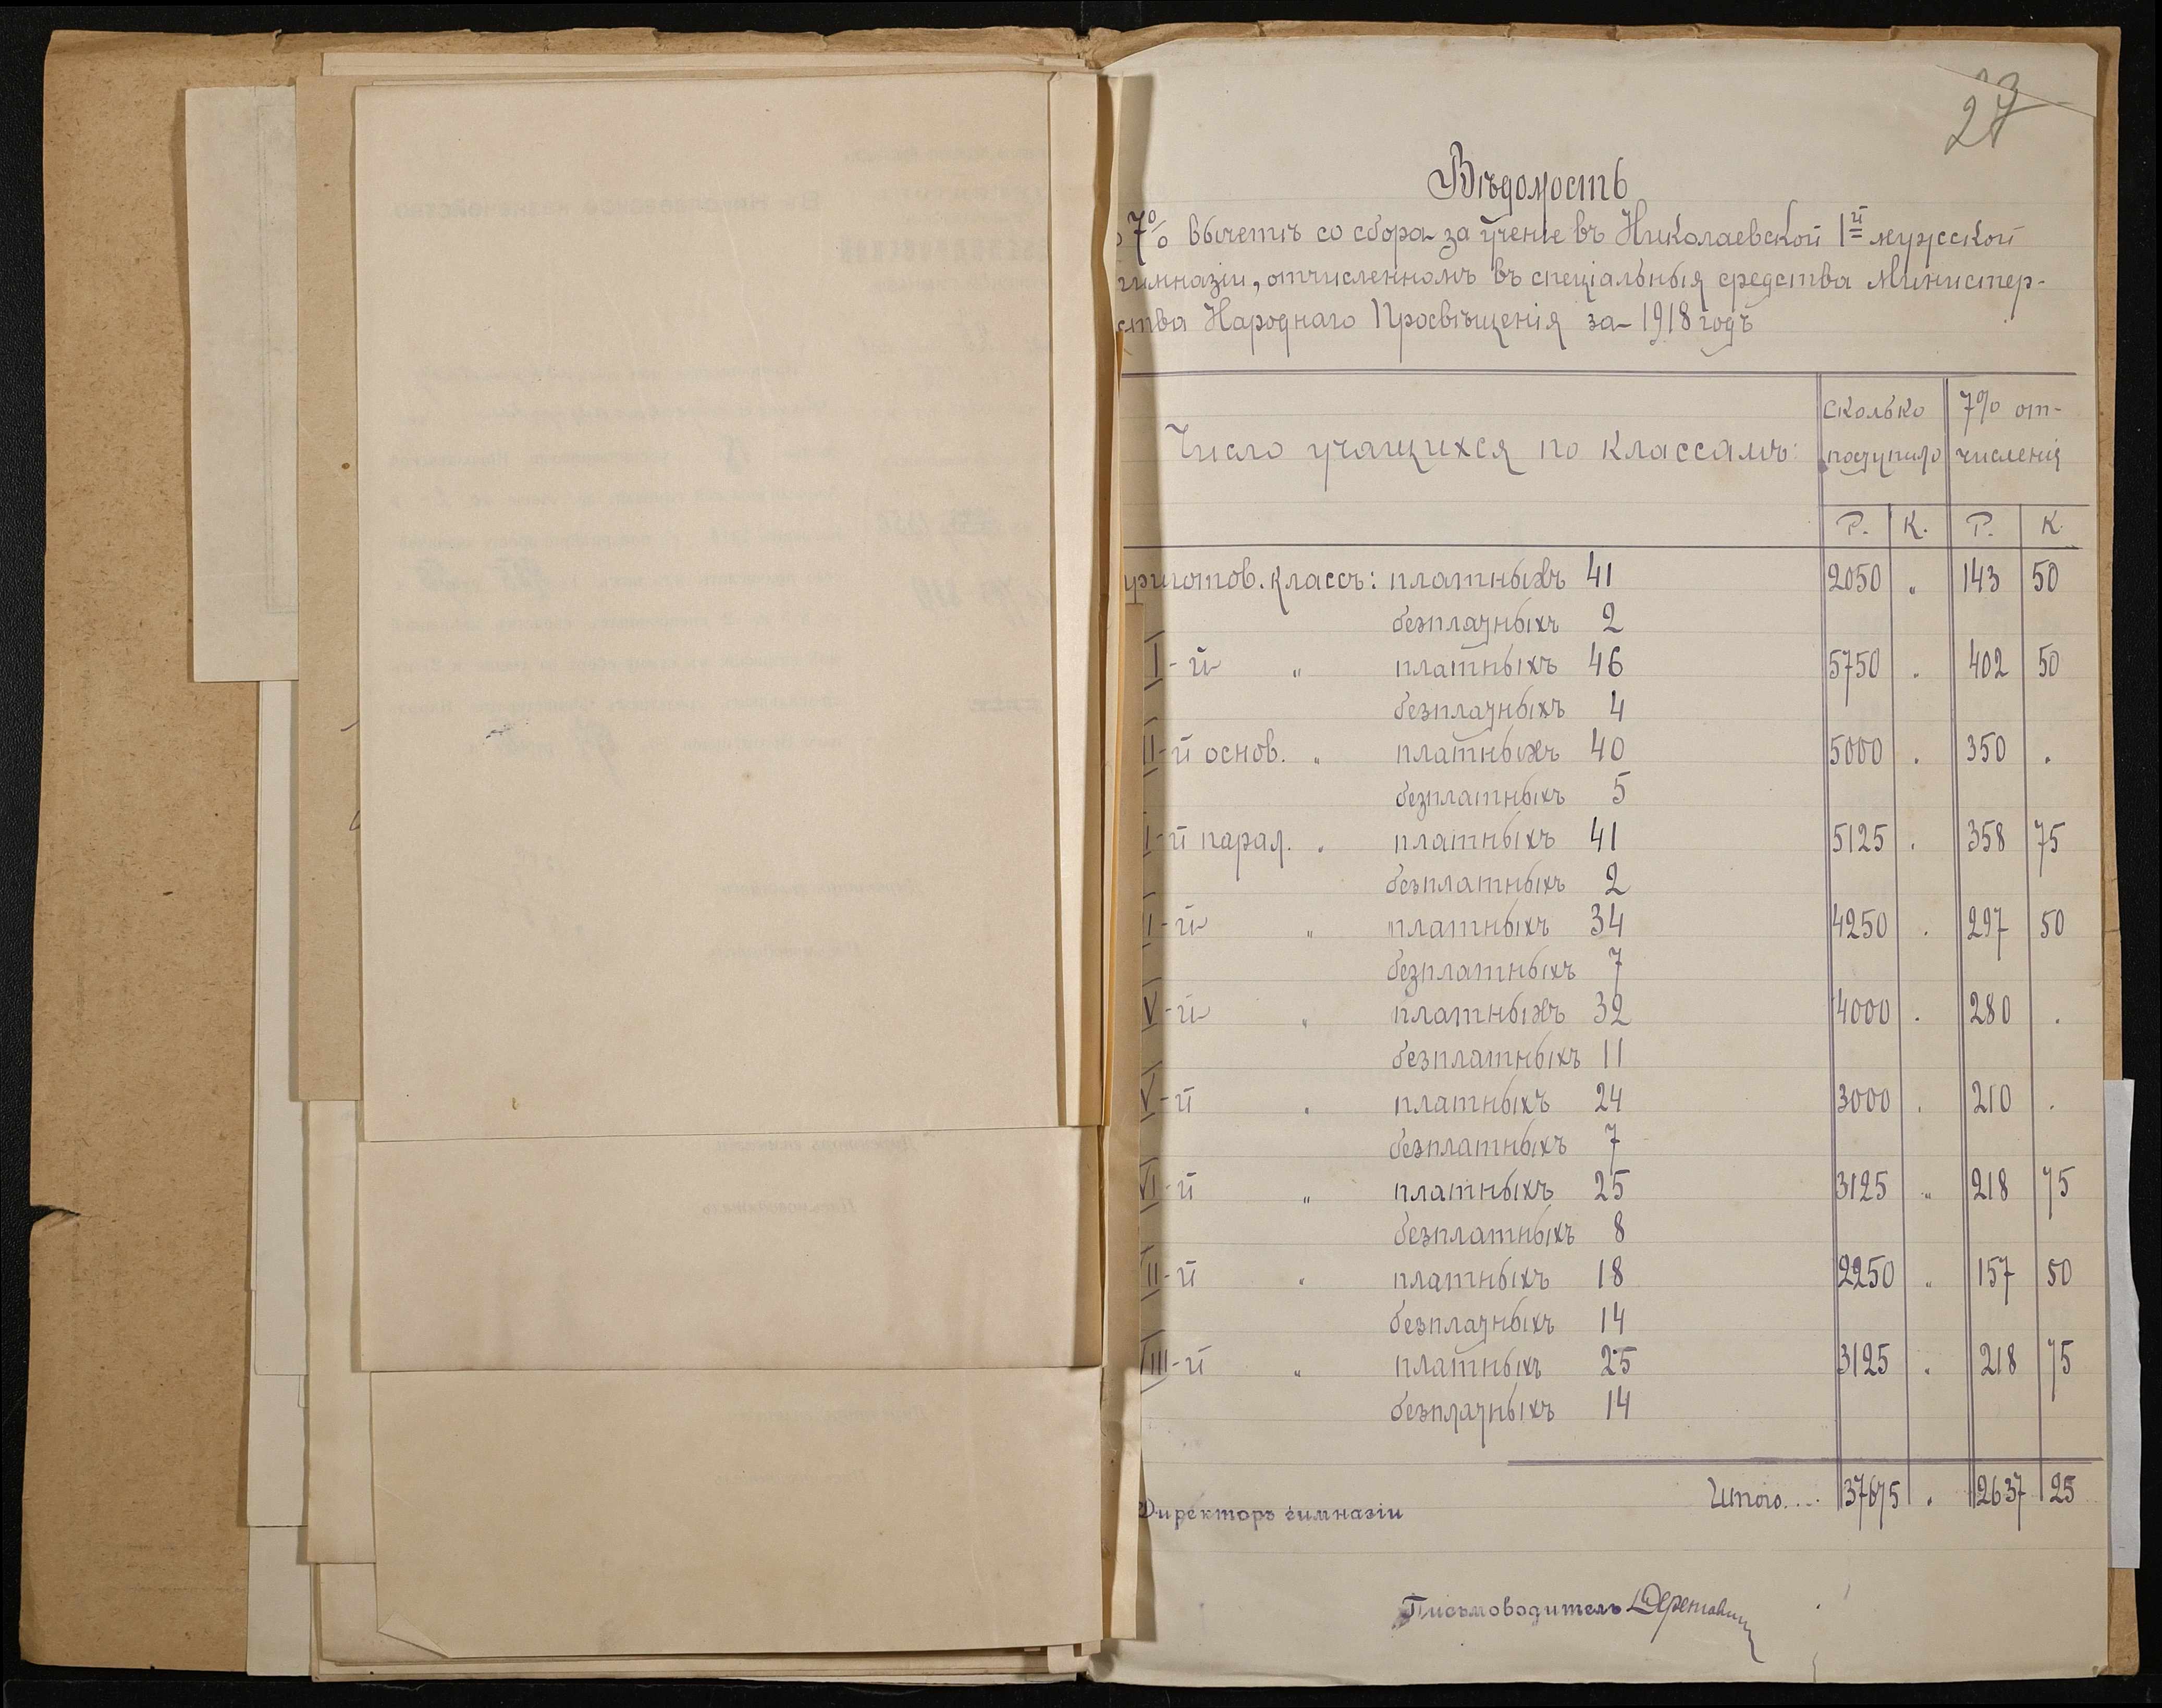 27
Вѣдомость
7% вычетѣ со сбора за ученіе въ Николаевской 1й мужской
гимназіи, отчисленномъ въ спеціальныя средства Министер-
ства Народнаго Просвѣщенія за 1918 годъ
Число учащихся по классамъ: Сколько поступило 7% от-численія
Р. К. Р. К.
пригот. классъ: платныхъ 41 2050 „ 143 50
безплатныхъ 2
I-й „ платныхъ 46 5750 . 402 50
безплатныхъ 4
II-й основ. „ платныхъ 40 5000 . 350 .
безплатныхъ 5
I-й парал. „ платныхъ 41 5125 . 358 75
безплатныхъ 2
I-й „ платныхъ 34 4250 . 297 50
безплатныхъ 7
V-й „ платныхъ 32 4000 . 280 .
безплатныхъ 11
V-й „ платныхъ 24 3000 . 210 .
безплатныхъ 7
VI-й „ платныхъ 25 3125 „ 218 75
безплатныхъ 8
II-й „ платныхъ 18 2250 „ 157 50
безплатныхъ 14
III-й „ платныхъ 25 3125 . 218 75
безплатныхъ 14
Итого.... 37675 . 2637 25
Директоръ гимназіи
Письмоводитель